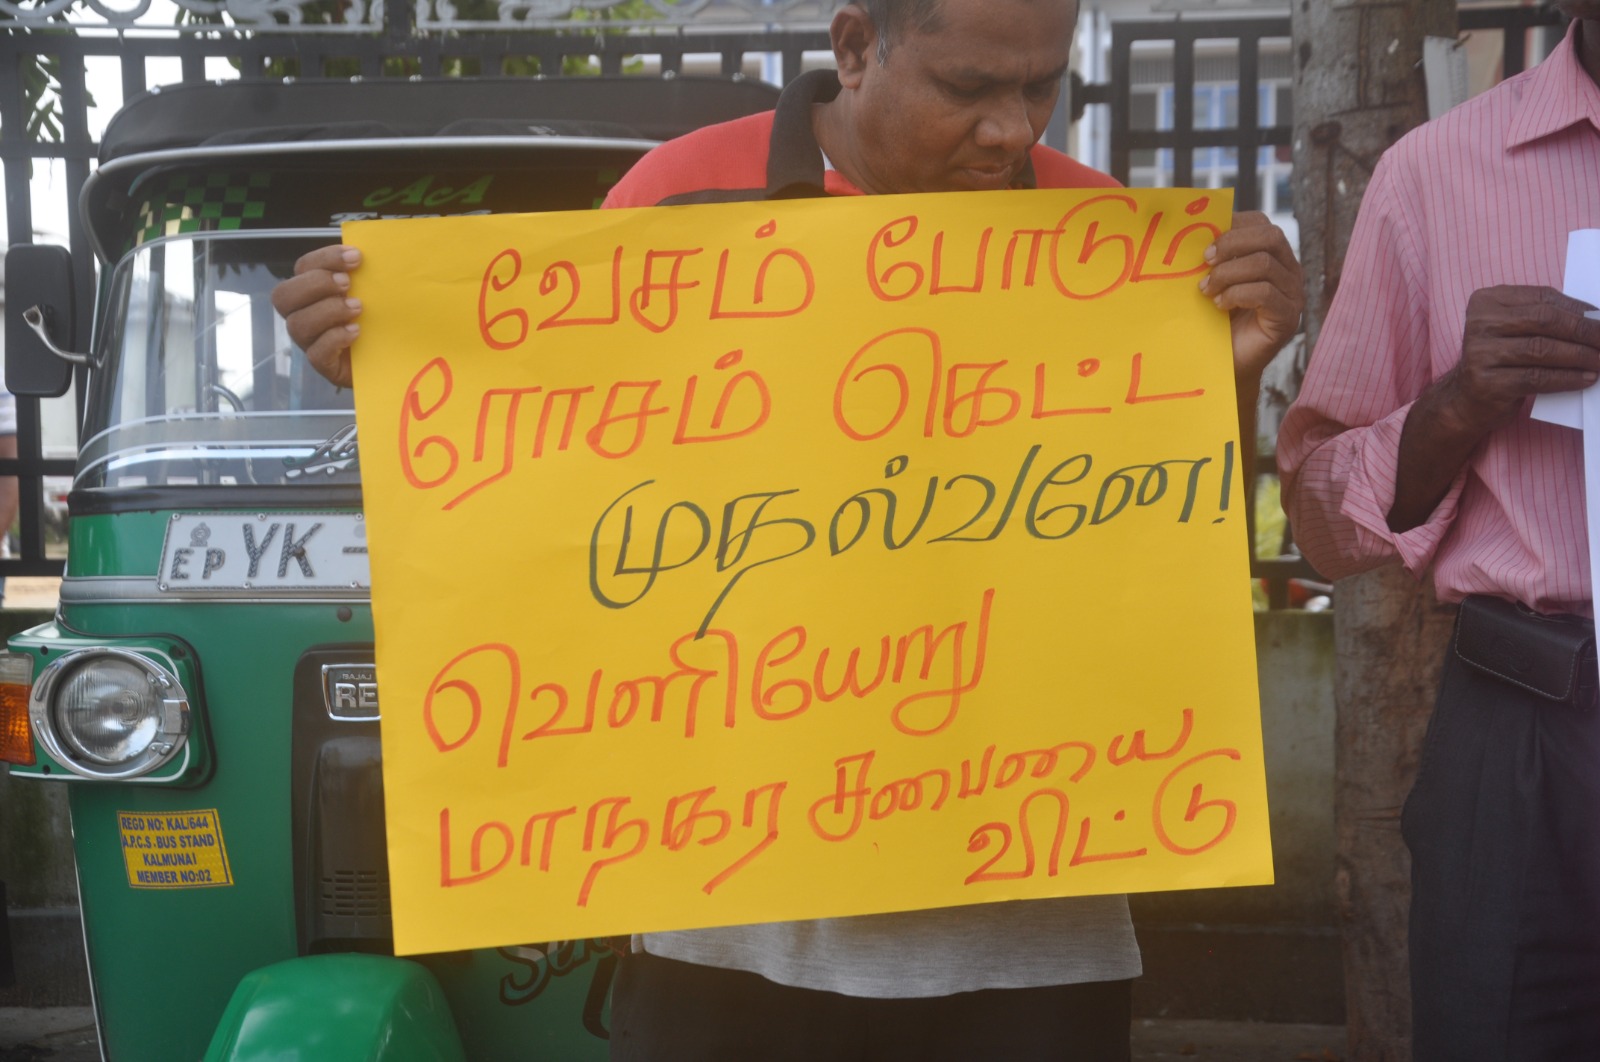 வேசம் போடும்
ரோசம் கெட்ட
முதல்வனே!
வெளியேறு
மாநகர சபையை
விட்டு
AA
EP YK -
BAJAJ
RE
REGD NO: KAL/644
A.P.C.S .BUS STAND
KALMUNAI
MEMBER NO:02